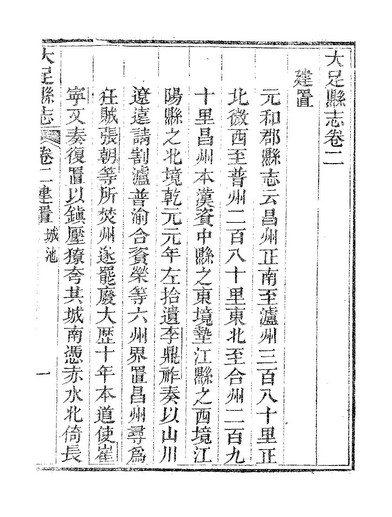 大足縣志卷二
建置
元和郡縣志云昌州正南至瀘州三百八十里正
北微西至普州二百八十里東北至合州二百九
十里昌州本漢資中縣之東境墊江縣之西境江
陽縣之北境乾元元年左拾遺李鼎祚奏以山川
遼遠請割瀘普渝合資榮等六州界置昌州尋為
狂賊張朝等所焚州遂罷廢大歷十年本道使崔
寧又奏復置以鎮壓獠夸其城南憑赤水北倚長
大足縣志
卷二建置
城池
一